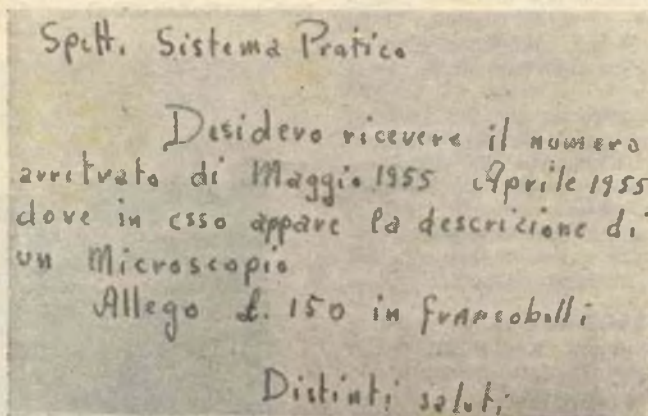 Spett. Sistema Pratico
Desidero ricevere il numero
arretrato di Maggio 1955 Aprile 1955
dove in esso appare la descrizione di
un Microscopio
Allego £. 150 in francobolli
Distinti saluti